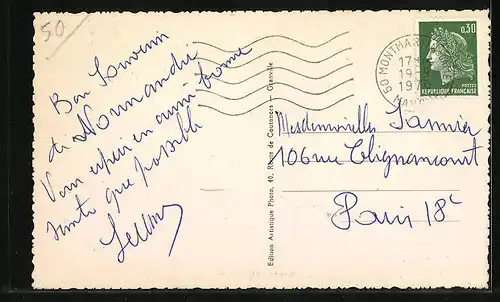 50
Bon Souvenir
de Normandie
Vous espère en aussi bonne
santé que possible
Mesdemoiselles Lannier
106 rue Clignancourt
Paris 18e
Edition Artistique Photo, 40, Route de Coutances - Granville
0,30
POSTES
REPUBLIQUE FRANÇAISE
50 MONTMAR
17
19